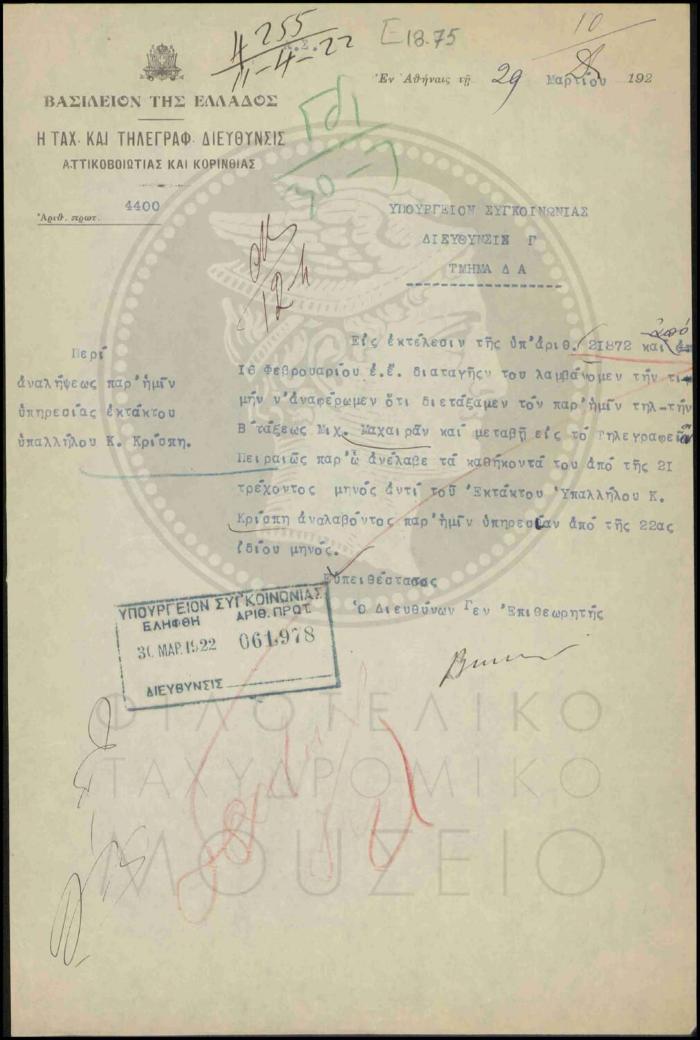 4255
11-4-22
Ε 18.75
10
Ἐν Ἀθήναις τῇ 29 Μαρτίου 192
ΒΑΣΙΛΕΙΟΝ ΤΗΣ ΕΛΛΑΔΟΣ
Η ΤΑΧ. ΚΑΙ ΤΗΛΕΓΡΑΦ. ΔΙΕΥΘΥΝΣΙΣ
ΑΤΤΙΚΟΒΟΙΩΤΙΑΣ ΚΑΙ ΚΟΡΙΝΘΙΑΣ
4400
Ἀριθ. πρωτ.
ΥΠΟΥΡΓΕΙΟΝ ΣΥΓΚΟΙΝΩΝΙΑΣ
ΔΙΕΥΘΥΝΣΙΝ Γ
ΤΜΗΜΑ Δ Α
Περί
ἀναλήψεως παρ'ἡμῖν
ὑπηρεσίας ἐκτάκτου
ὑπαλλήλου Κ. Κρίσπη.
Εἰς ἐκτέλεσιν τῆς ὑπ'ἀριθ. 21872 καί ἀπό
16 Φεβρουαρίου ἐ.ἔ. διαταγῆς του λαμβάνομεν τήν τι-
μήν ν'ἀναφέρωμεν ὅτι διετάξαμεν τόν παρ'ἡμῖν τηλ-τήν
Β τάξεως Μιχ. Μαχαιρᾶν καί μεταβῇ εἰς τό Τηλεγραφεῖον
Πειραιῶς παρ'ᾧ ἀνέλαβε τά καθήκοντά του ἀπό τῆς 21
τρέχοντος μηνός ἀντί τοῦ Ἐκτάκτου Ὑπαλλήλου Κ.
Κρίσπη ἀναλαβόντος παρ'ἡμῖν ὑπηρεσίαν ἀπό τῆς 22ας
ἰδίου μηνός.
Εὐπειθέστατος
Ὁ Διευθύνων Γεν Ἐπιθεωρητής
ΥΠΟΥΡΓΕΙΟΝ ΣΥΓΚΟΙΝΩΝΙΑΣ
ΕΛΗΦΘΗ ΑΡΙΘ. ΠΡΩΤ.
30 ΜΑΡ. 1922 061978
ΔΙΕΥΘΥΝΣΙΣ
ΦΙΛΟΤΕΛΙΚΟ
ΤΑΧΥΔΡΟΜΙΚΟ
ΜΟΥΣΕΙΟ